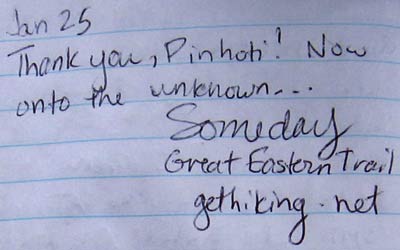 Jan 25
Thank you, Pinhoti! Now
onto the unknown...
Someday
Great Eastern Trail
gethiking.net